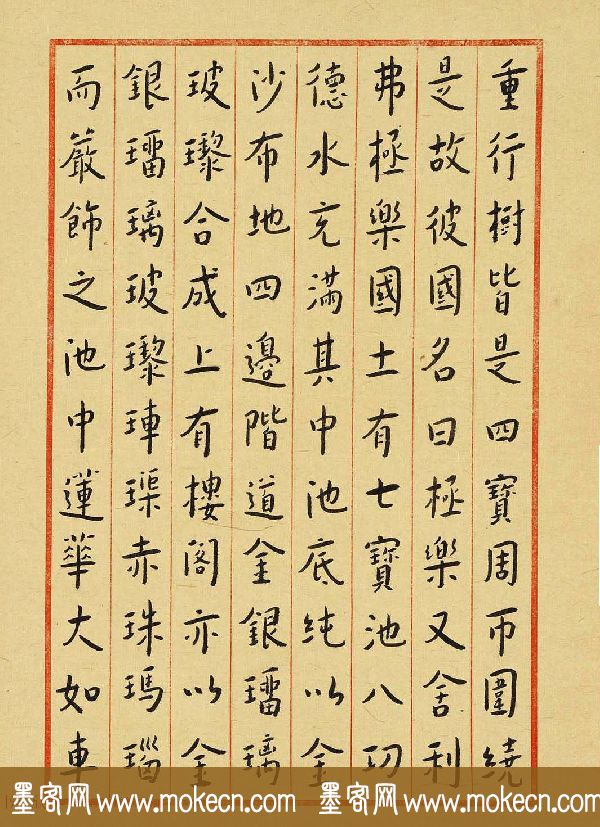 重行樹皆是四寶周帀圍繞
是故彼國名曰極樂又舍利
弗極樂國土有七寶池八功
德水充滿其中池底純以金
沙布地四邊階道金銀瑠璃
玻瓈合成上有樓閣亦以金
銀瑠璃玻瓈𤥭璖赤珠瑪瑙
而嚴飾之池中蓮華大如車
墨客网 www.mokecn.com 墨客网 www.mokecn.com